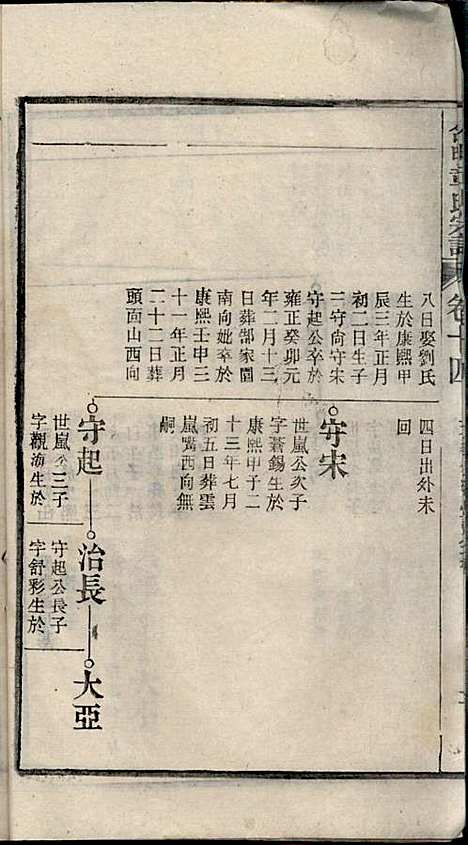 章氏宗譜
卷十四
八日娶劉氏
生於康熙甲
辰三年正月
初二日生子
三守尚守宋
守起公卒於
雍正癸卯元
年二月十三
日葬郜家園
南向妣卒於
康熙壬申三
十一年正月
二十二日葬
頭面山西向
四日出外未
回
守宋
世嵐公次子
字蒼錫生於
康熙甲子二
十三年七月
初五日葬雲
嵐嘴西向無
嗣
守起
世嵐公三子
字觀海生於
治長
守起公長子
字舒彩生於
大亞